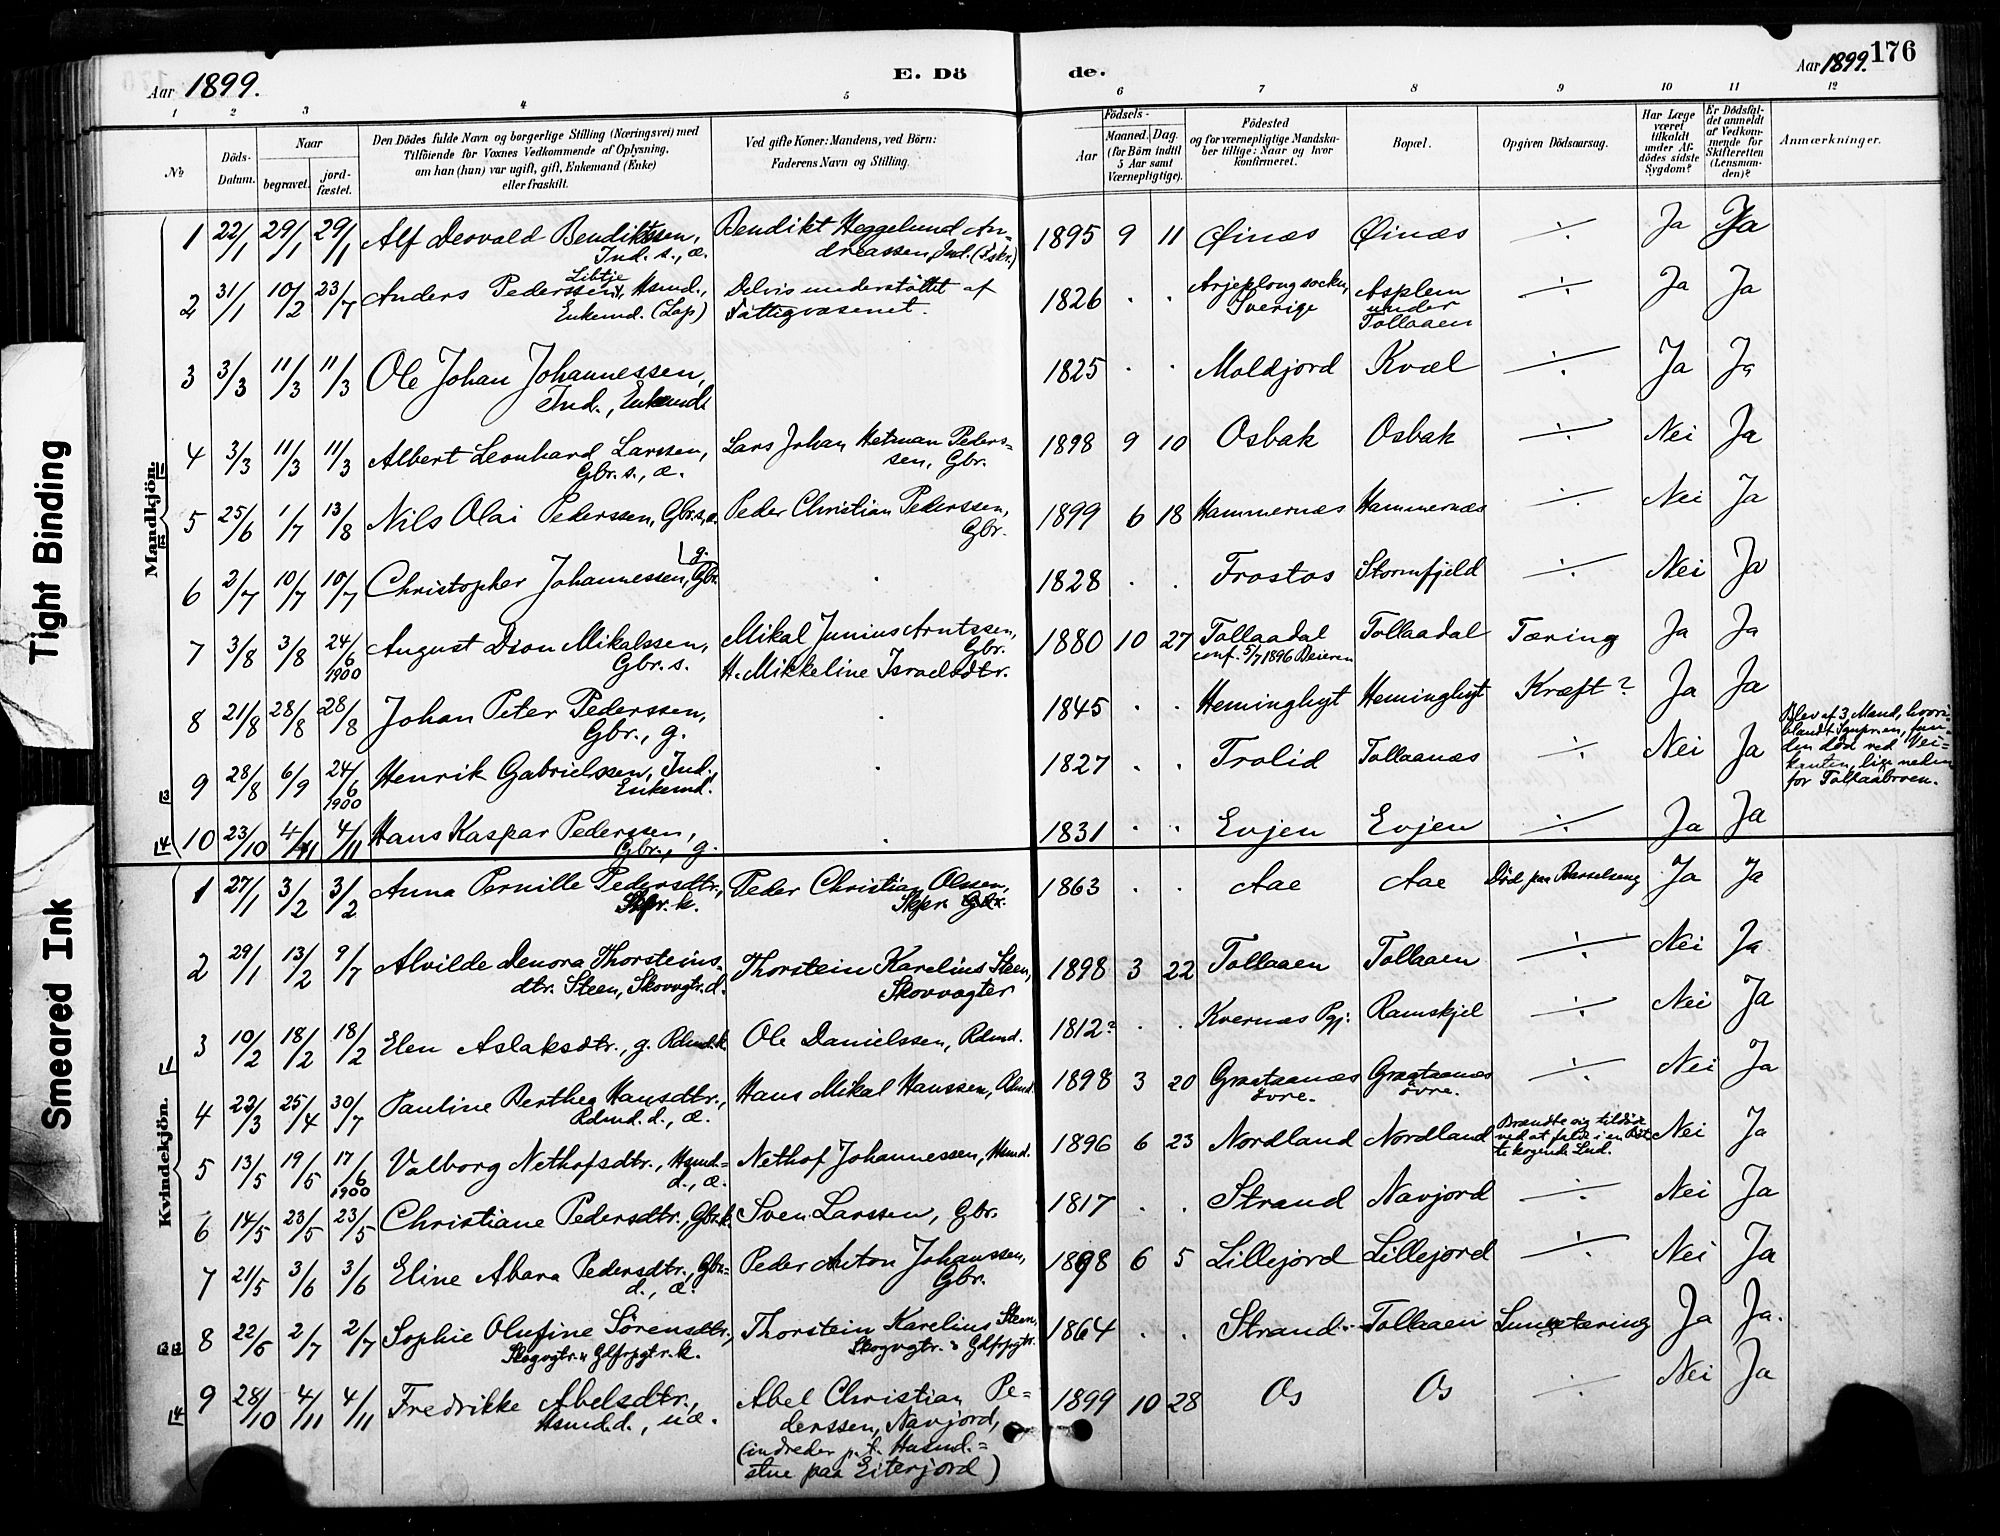 Aar 1899.
E. Dö
de.
Aar 1899. 176
1 2 3 4 5 6 7 8 9 10 11 12
№
Döds-Datum.
Naar
begravet.
jord-fæstet.
Den Dödes fulde Navn og borgerlige Stilling (Næringsvei) med
Tilföiende for Voxnes Vedkommende af Oplysning,
om han (hun) var ugift, gift, Enkemand (Enke)
eller fraskilt.
Ved gifte Koner: Mandens, ved Börn:
Faderens Navn og Stilling.
Födsels-
Aar
Maaned. Dag.
(for Börn indtil
5 Aar samt
Værnepligtige).
Födested
og for værnepligtige Mandska-
ber tillige: Naar og hvor
konfirmeret.
Bopæl.
Opgiven Dödsaarsag.
Har Læge
været
tilkaldt
under Af-
dödes sidste
Sygdom?
Er Dödsfal-
det anmeldt
af Vedkom-
mende for
Skifteretten
(Lensman-
den)?
Anmærkninger.
Mandkjön.
1 22/1 29/1 29/1 Alf Deovald Bendiktssen, Bendikt Heggelund An- 1895 9 11 Øinæs Øinæs ÷ Ja Ja
Ind. s., æ. dreassen, Ind. (Fskr.)
2 31/1 10/2 23/7 Anders Pederssen, Libtje Hsmd., Delvis understöttet af 1826 . . Arjeplougsocken, Asplem ÷ Ja Ja
Enkemd. (Lap) Fattigvæsenet. Sverige under
Tollaaen
3 3/3 11/3 11/3 Ole Johan Johannessen, 1825 . . Moldjord Kvæl ÷ Ja Ja
Ind., Enkemd.
4 3/3 11/3 11/3 Albert Leonhard Larssen, Lars Johan Herman Peders- 1898 9 10 Osbak Osbak ÷ Nei Ja
Gbr. s., æ. sen, Gbr.
5 25/6 1/7 13/8 Nils Olai Pederssen, Gbr. s., æ. Peder Christian Pederssen, 1899 6 18 Hammernæs Hammernæs ÷ Nei Ja
Gbr.
6 2/7 10/7 10/7 Christopher Johannessen, Gbr. g. . 1828 . . Frostos Stormfjeld ÷ Nei Ja
7 3/8 3/8 24/6 1900 August Dion Mikalssen, Mikal Junius Arntssen, 1880 10 27 Tollaadal Tollaadal Tæring Ja Ja
Gbr. s. Gbr. conf. 5/7 1896 Beieren
H. Mikkeline Israelsdtr.
8 21/8 28/8 28/8 Johan Peter Pederssen, . 1845 . . Heminghyt Heminghyt Kræft? Ja Ja
Gbr., g.
9 28/8 6/9 24/6 1900 Henrik Gabrielssen, Ind., . 1827 . . Trolid Tollaanæs ÷ Nei Ja
Enkemd.
Blev af 3 Mand, hvori-
blandt Sognepr., fun-
den död ved Vei-
kanten, lige neden
for Tollaabroen.
10 23/10 4/11 4/11 Hans Kaspar Pederssen, . 1831 . . Evjen Evjen ÷ Ja Ja
Gbr., g.
Kvindekjön.
1 27/1 3/2 3/2 Anna Pernille Pedersdtr., Peder Christian Olssen, 1863 . . Aae Aae Död paa Barselseng Ja Ja
Skpr. k. Skpr.
2 29/1 13/2 9/7 Alvilde Denora Thorsteins- Thorstein Karelius Steen, 1898 3 22 Tollaaen Tollaaen ÷ Nei Ja
dtr. Steen, Skovvgtr. d. Skovvogter
3 10/2 18/2 18/2 Elen Aslaksdtr., g. Rdmd. k. Ole Danielssen, Rdmd. 1812? . . Kvernæs Pgj. Ramskjel ÷ Nei Ja
4 22/3 25/4 30/7 Pauline Berthea Hansdtr., Hans Mikal Hanssen, Rdmd. 1898 3 20 Graataanæs Graataanæs ÷ Nei Ja
Rdmd. d., æ. övre. övre.
5 13/5 19/5 17/6 1900 Valborg Nethofsdtr., Hsmd.- Nethof Johannessen, Hsmd. 1896 6 23 Nordland Nordland Brændte sig tildöde Nei Ja
d., æ. ved at falde i en Böt-
te kogende Lud.
6 14/5 23/5 23/5 Christiane Pedersdtr., Gbr. k. Sven Larssen, Gbr. 1817 . . Strand Navjord ÷ Nei Ja
7 21/5 3/6 3/6 Eline Abara Pedersdtr., Gbr.- Peder Anton Johanssen, 1898 6 5 Lillejord Lillejord ÷ Nei Ja
d., æ. Gbr.
8 22/6 2/7 2/7 Sophie Olufine Sörensdtr., Thorstein Karelius Steen, 1864 . . Strand Tollaaen Lungetæring Ja Ja.
Skogvgtr. & Gdfrpgtr. k. Skogvgtr. & Gdfrpgtr.
9 28/10 4/11 4/11 Fredrikke Abelsdtr., Abel Christian Pe- 1899 10 28 Os Os ÷ Nei Ja
Hsmd. d., uæ. derssen, Navjord,
(indreder p. t. Husmd.-
stue paa Eiterjord)
Tight Binding
Smeared Ink